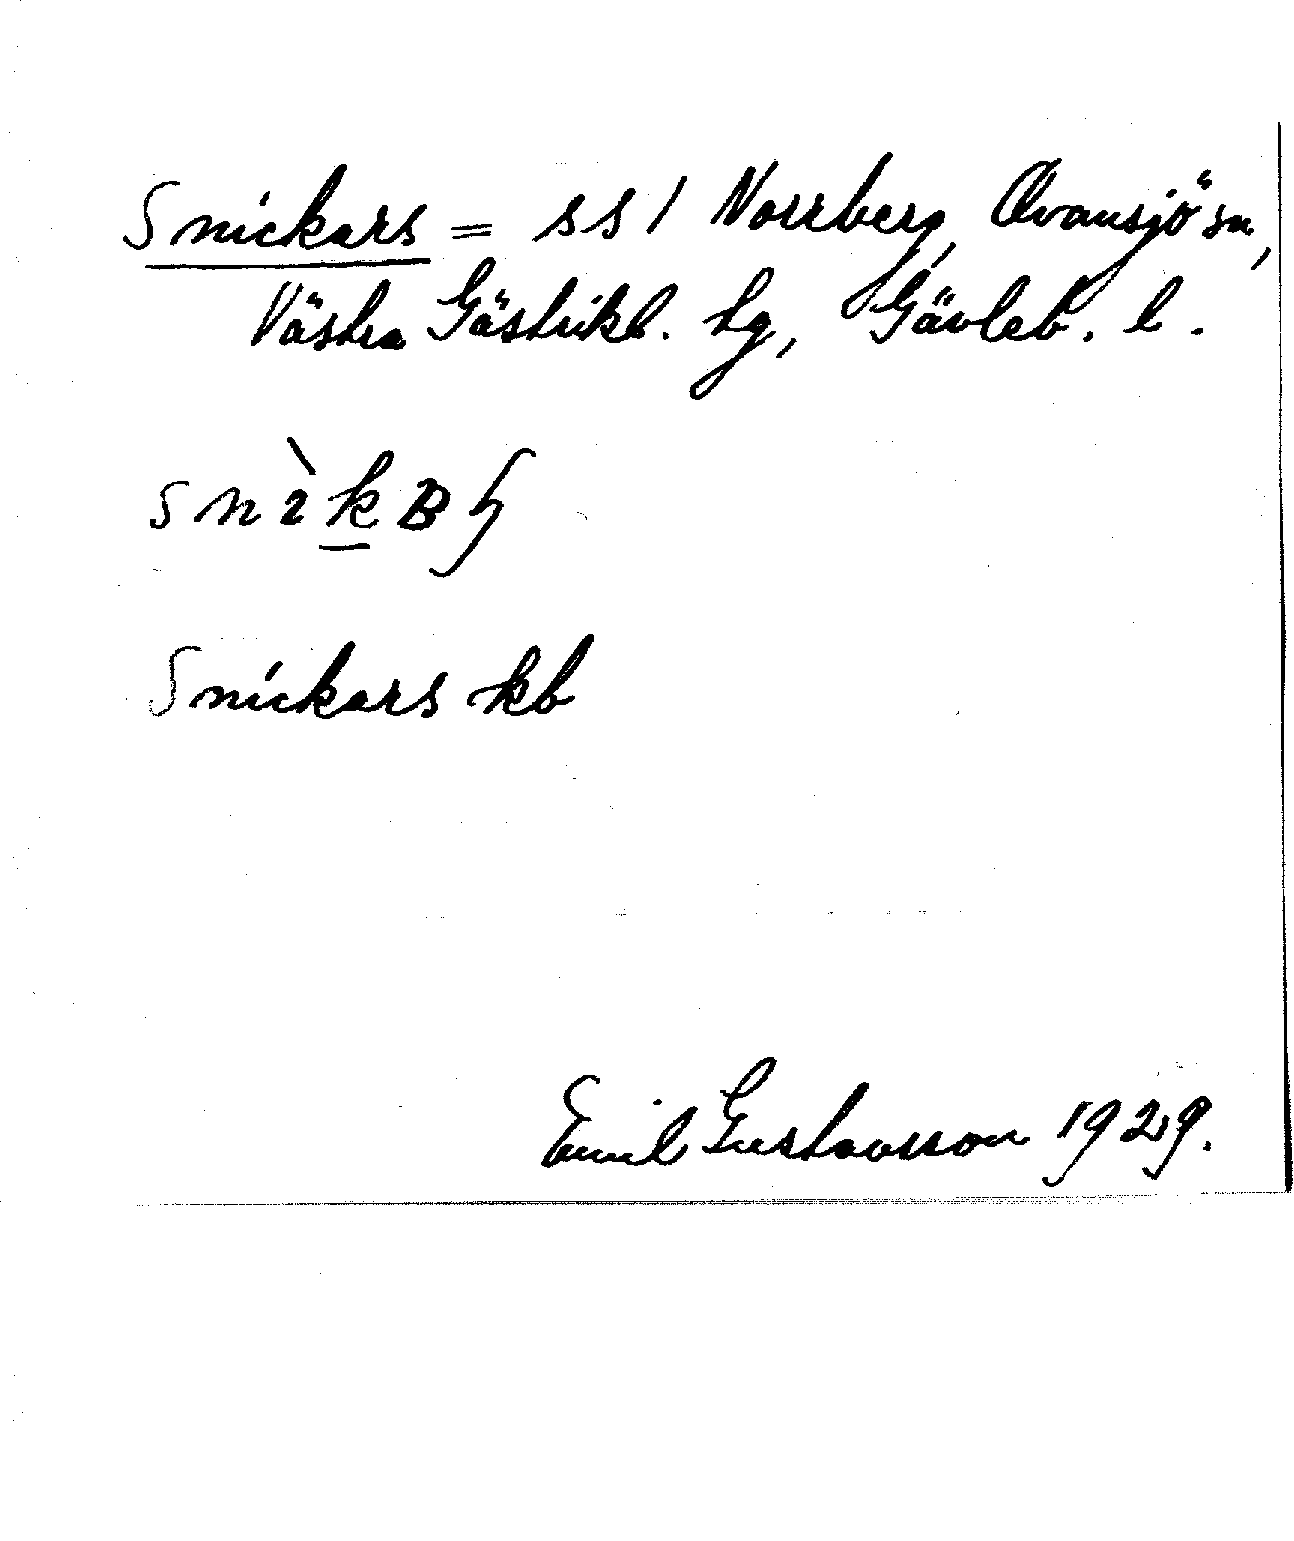 Snickars = ss 1 Norrberg, Ovansjö sn,
Västra Gästrikl. hg, Gävleb. l.
Snickars kb
Emil Gustavsson 1929.